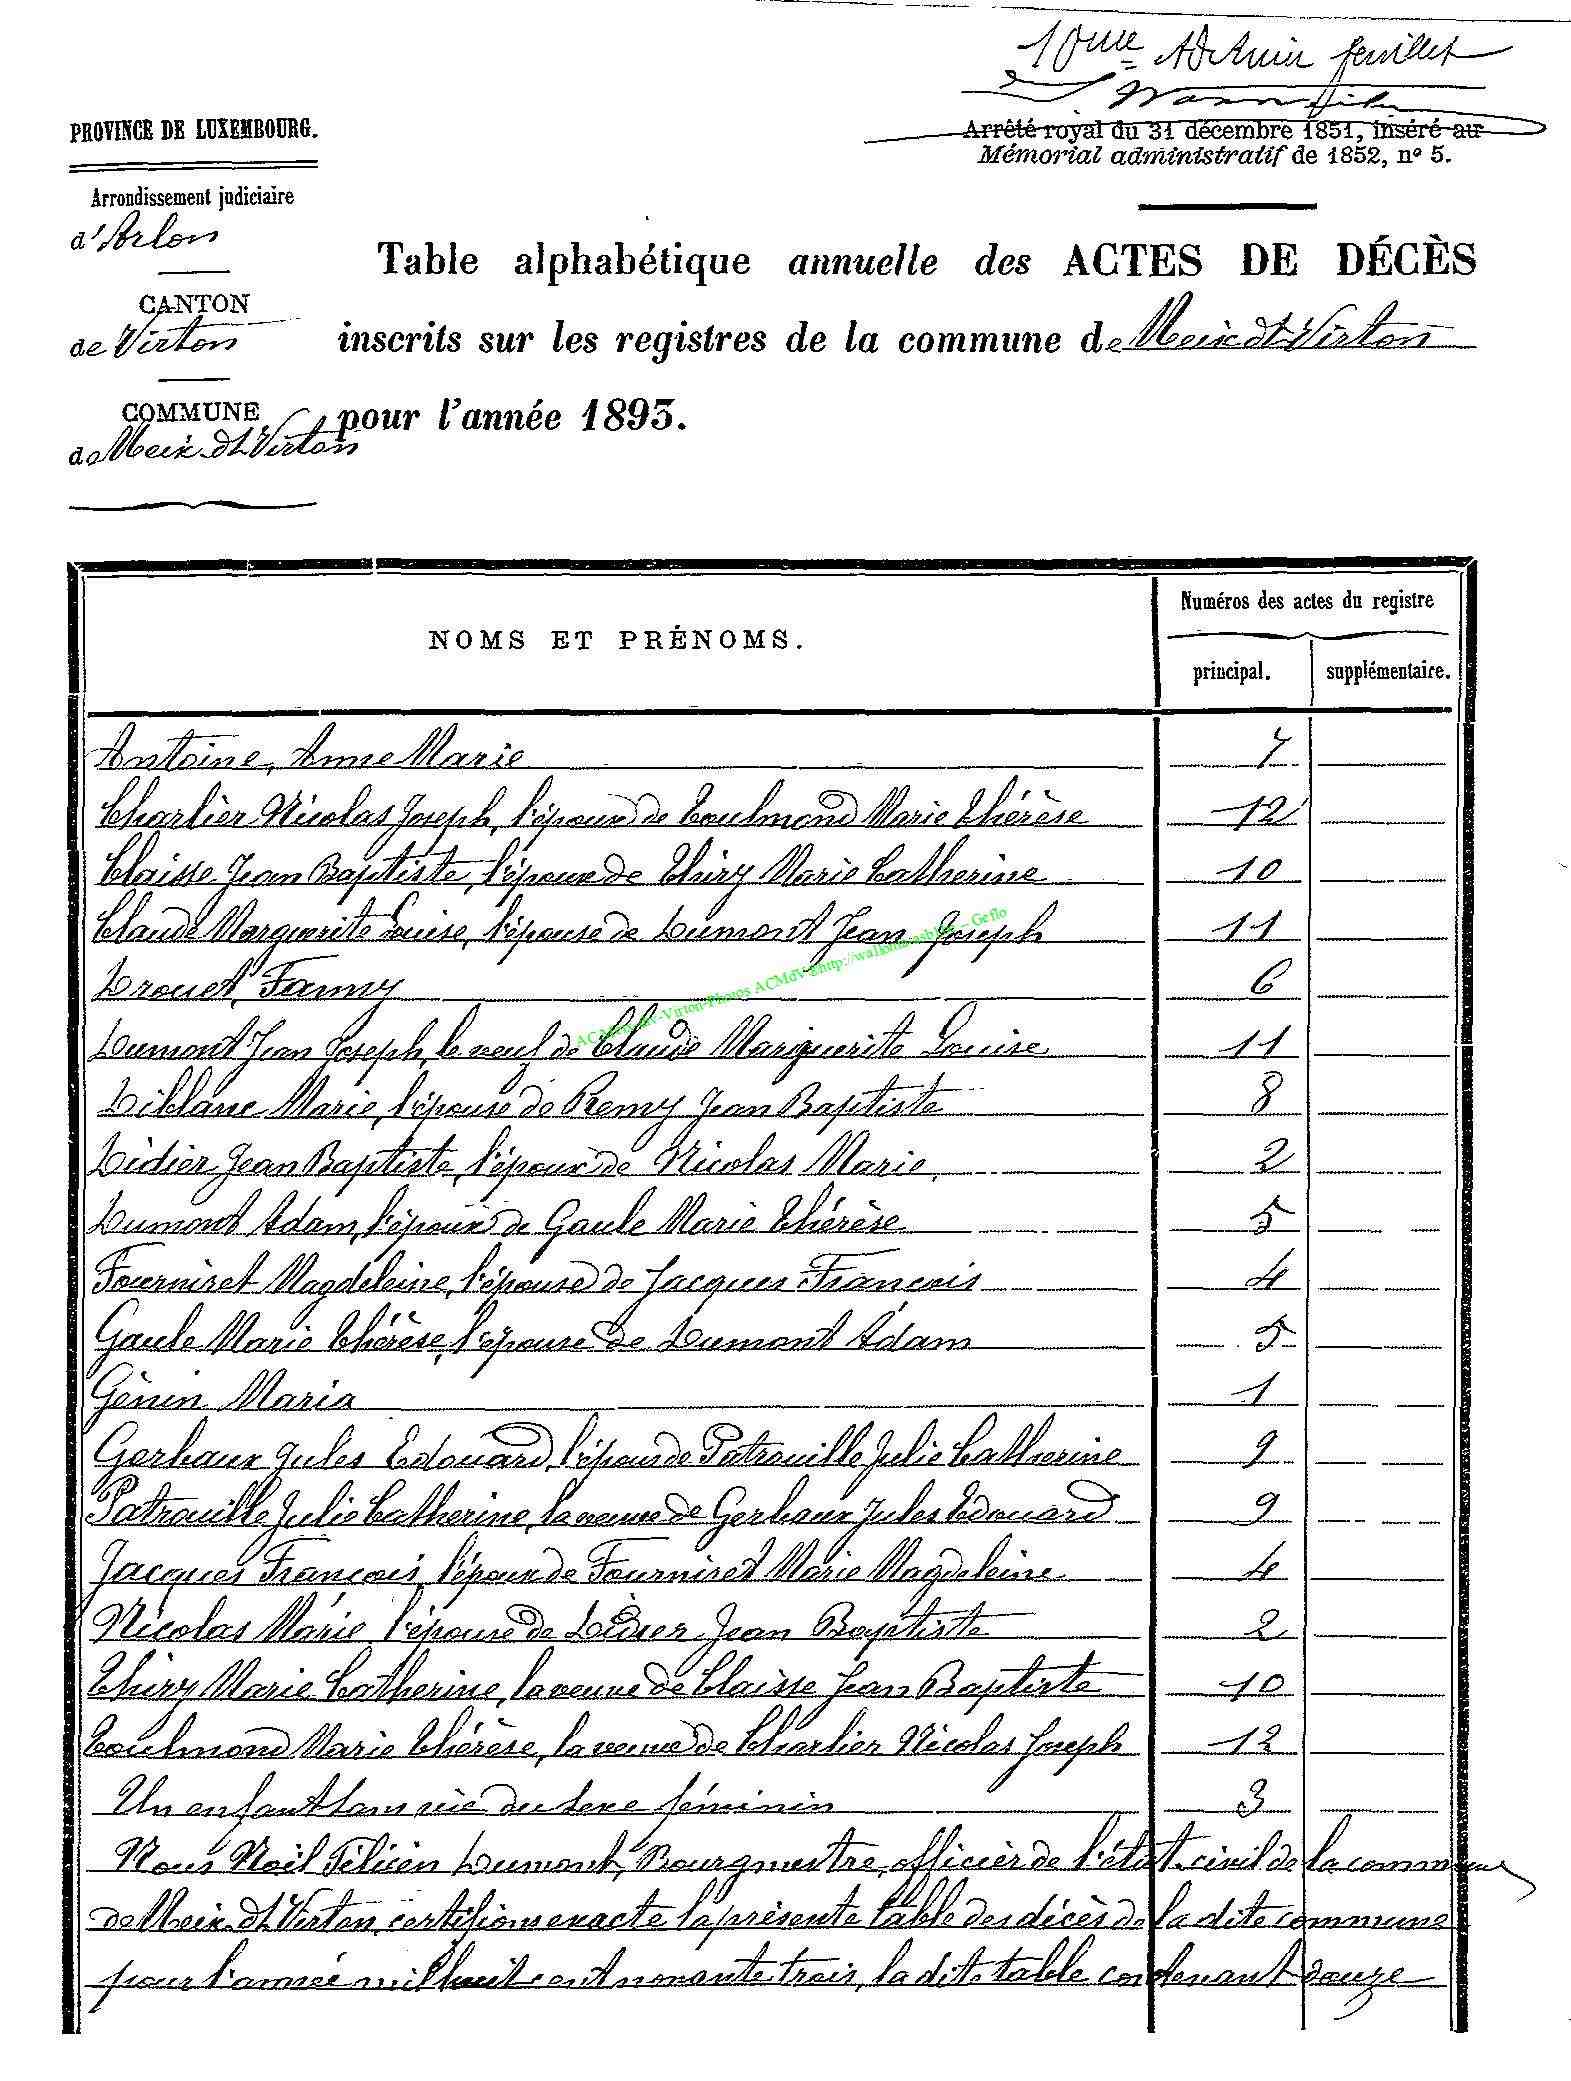 10me et dernier feuillet
PROVINCE DE LUXEMBOURG.
Arrêté royal du 31 décembre 1851, inséré au
Mémorial administratif de 1852, nº 5.
Arrondissement judiciaire
d'Arlon
CANTON
de Virton
COMMUNE
de Meix-dt-Virton
Table alphabétique annuelle des ACTES DE DÉCÈS
inscrits sur les registres de la commune de Meix dt Virton
pour l'année 1893.
NOMS ET PRÉNOMS.
Numéros des actes du registre
principal. supplémentaire.
Antoine, Anne Marie 7
Charlier Nicolas Joseph, l'époux de Toulmond Marie Thérèse 12
Claisse Jean Baptiste, l'époux de Thiry Marie Catherine 10
Claude Marguerite Louise, l'épouse de Dumont Jean Joseph 11
Drouet, Fanny 6
Dumont Jean Joseph, le veuf de Claude Marguerite Louise 11
Diblanc Marie, l'épouse de Remy Jean Baptiste 8
Didier Jean Baptiste, l'époux de Nicolas Marie, 2
Dumont Adam, l'époux de Gaule Marie Thérèse 5
Fourniret Magdeleine, l'épouse de Jacques François 4
Gaule Marie Thérèse, l'épouse de Dumont Adam 5
Génin Maria 1
Gerbaux Jules Edouard, l'époux de Patrouille Julie Catherine 9
Patrouille Julie Catherine, la veuve de Gerbaux Jules Edouard 9
Jacques François, l'époux de Fourniret Marie Magdeleine 4
Nicolas Marie l'épouse de Didier Jean Baptiste 2
Thiry Marie Catherine, la veuve de Claisse Jean Baptiste 10
Toulmond Marie Thérèse, la veuve de Charlier Nicolas Joseph 12
Un enfant sans vie du sexe féminin 3
Nous Noël Félicien Dumont, Bourgmestre, officier de l'état-civil de la commune
de Meix-dt-Virton, certifions exacte la présente table des décès de la dite commune
pour l'année mil huit cent nonante trois, la dite table contenant douze